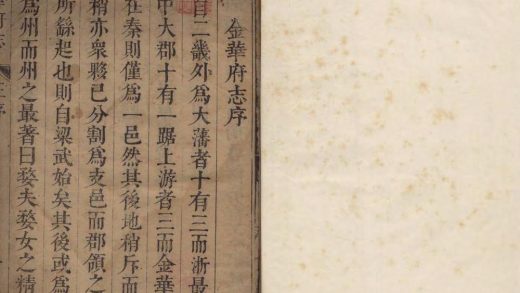 金華府志序
自二畿外為大藩者十有三而浙最
中大郡十有一踞上游者三而金華
在秦則僅為一邑然其後地稍斥而
稍亦衆夥已分割為支邑而郡領之
所繇起也則自梁武始矣其後或為
為州而州之最著曰婺夫婺女之精
府志
序